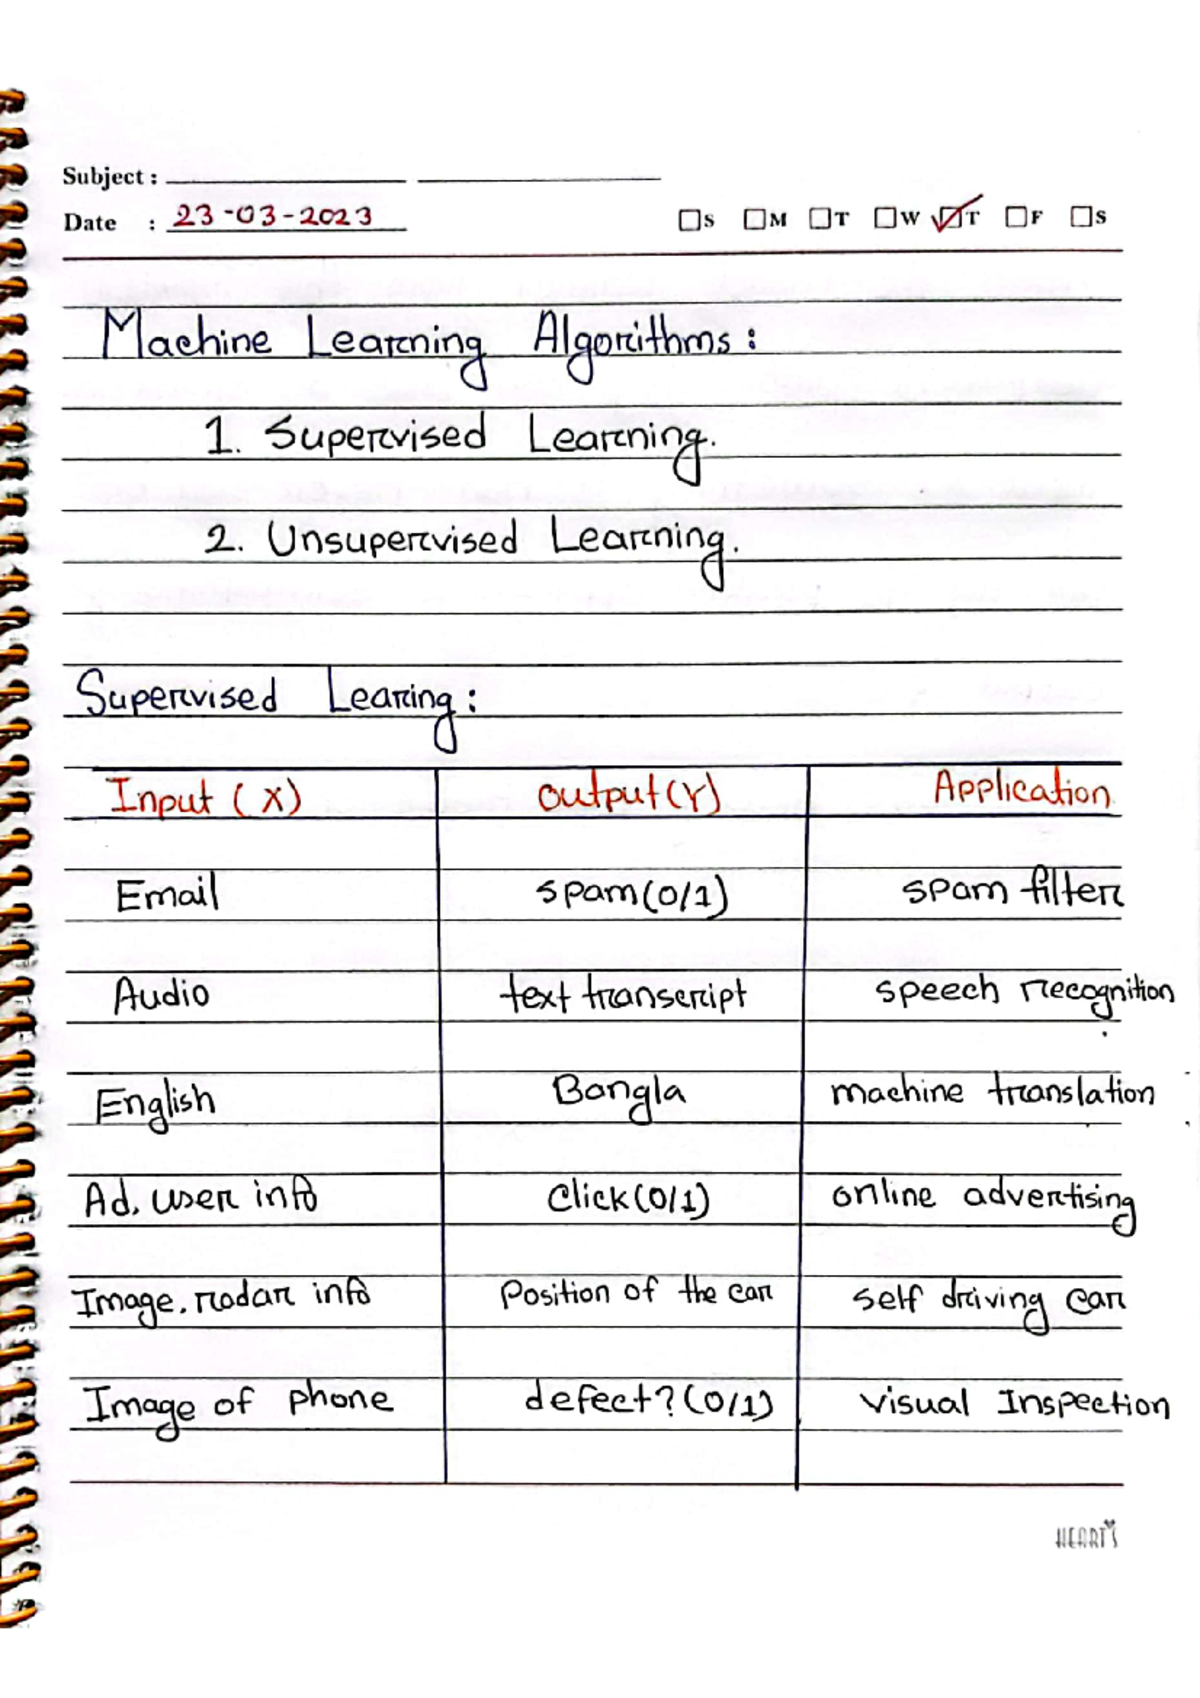 Subject :
Date : 23-03-2023 S M T W T F S
Machine Learning Algorithms :
1. Supervised Learning.
2. Unsupervised Learning.
Supervised Learing :
Input (X) output(Y) Application
Email spam(0/1) spam filter
Audio text transcript speech recognition
English Bangla machine translation
Ad, user info Click(0/1) online advertising
Image, radar info Position of the car self driving car
Image of phone defect? (0/1) visual Inspection
HEARTS